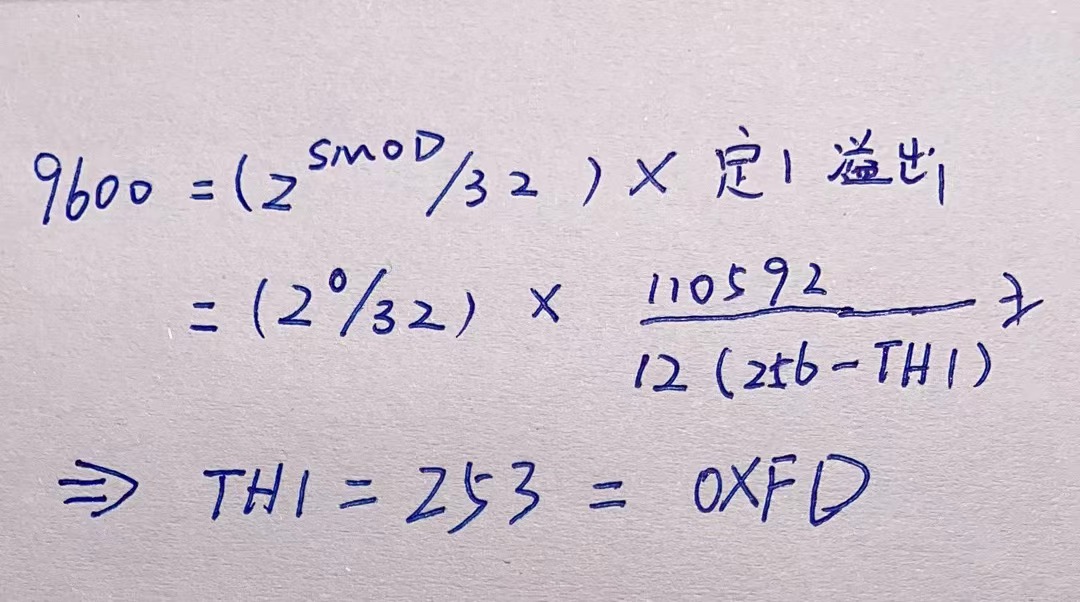 9600 = (2^SMOD/32) × 定1溢出
= (2^0/32) × 110592/12(256-TH1)
⇒ TH1 = 253 = 0XFD